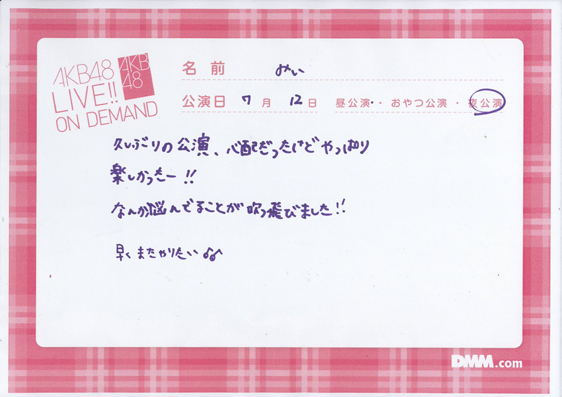 AKB48
LIVE!!
ON DEMAND
AKB
48
名前 みい
公演日 7月 12日 昼公演・おやつ公演・夜公演
久しぶりの公演、心配だったけどやっぱり
楽しかったー!!
なんか悩んでることが吹っ飛びました!!
早くまたやりたい♪
DMM.com